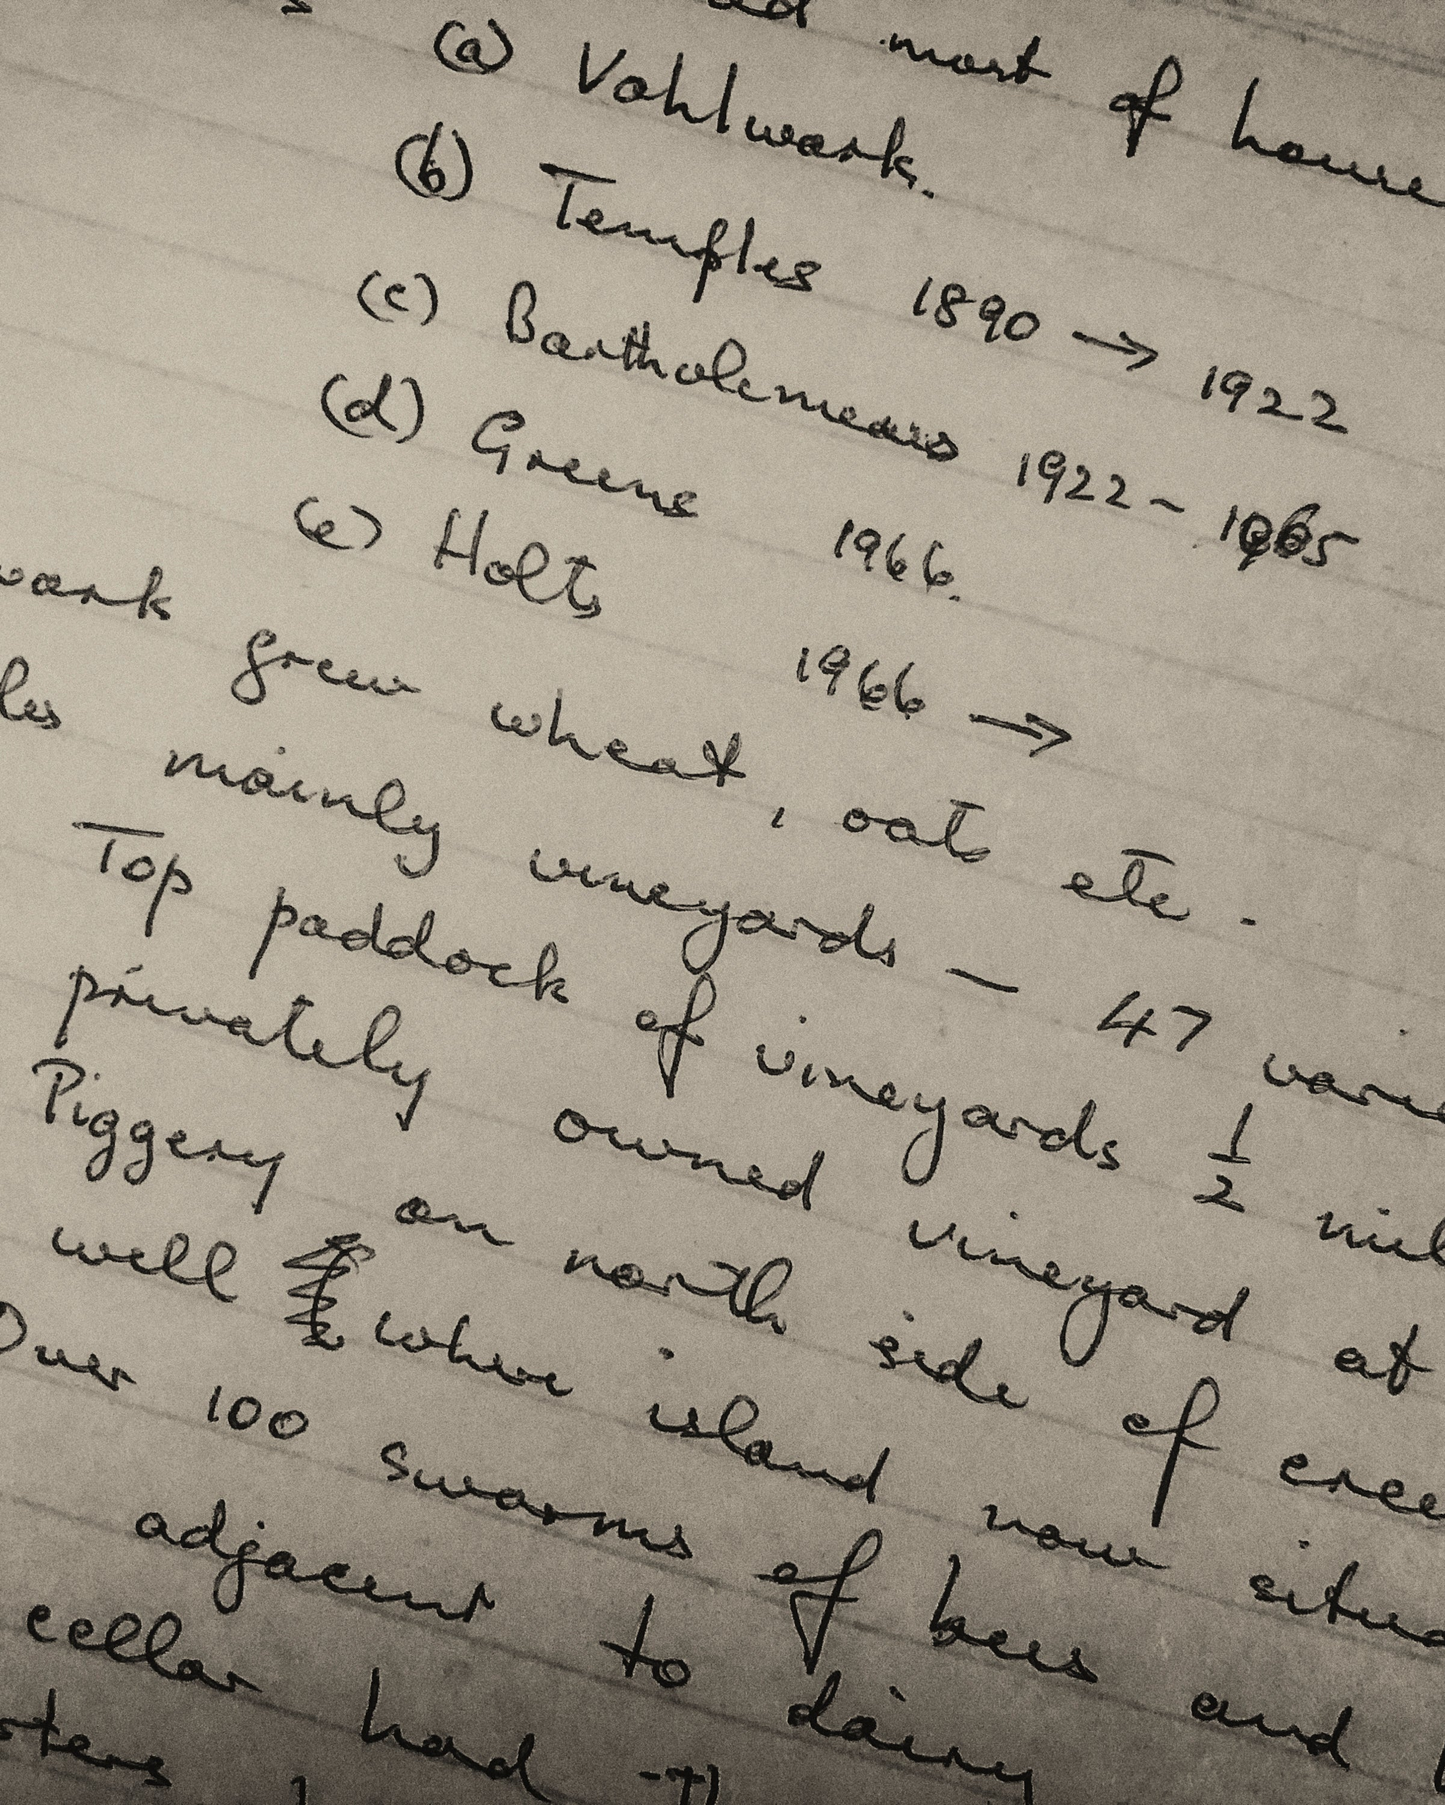 most of house
(a) Vohlwark.
(b) Temples 1890 → 1922
(c) Bartholemews 1922 - 1965
(d) Greens 1966.
(e) Holts 1966 →
wark grew wheat, oats etc.
les mainly vineyards — 47 varie
Top paddock of vineyards 1/2 mil
privately owned vineyard at
Piggery on north side of cree
well where island now situa
Over 100 swarms of bees and
adjacent to dairy
cellar had